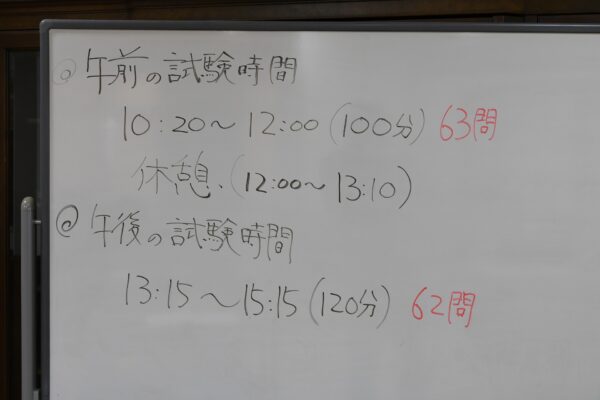 ◎午前の試験時間
10:20〜12:00(100分) 63問
休憩、(12:00〜13:10)
◎午後の試験時間
13:15〜15:15(120分) 62問